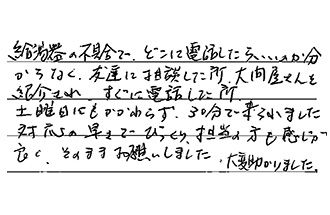 給湯器の不具合で、どこに電話したらいいか分
からなく、友達に相談した所、大向屋さんを
紹介され、すぐに電話した所、
土曜日にもかかわらず、30分で来られました
対応の早さでびっくり、担当の方も感じが
良く、そのままお願いしました。大変助かりました。